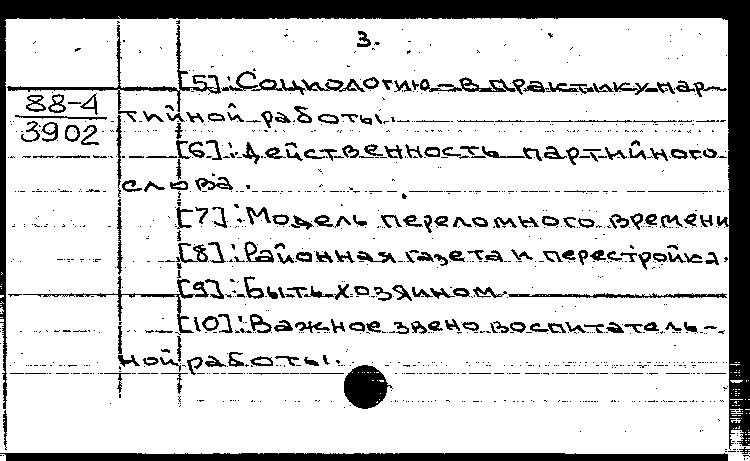 3.
[5]: Социологию - в практику пар-
88-4
3902
тийной работы.
[6]: Действенность партийного
слова.
[7]: Модель переломного времени
[8]: Районная газета и перестройка.
[9]: Быть хозяином.
[10]: Важное звено воспитатель-
ной работы.